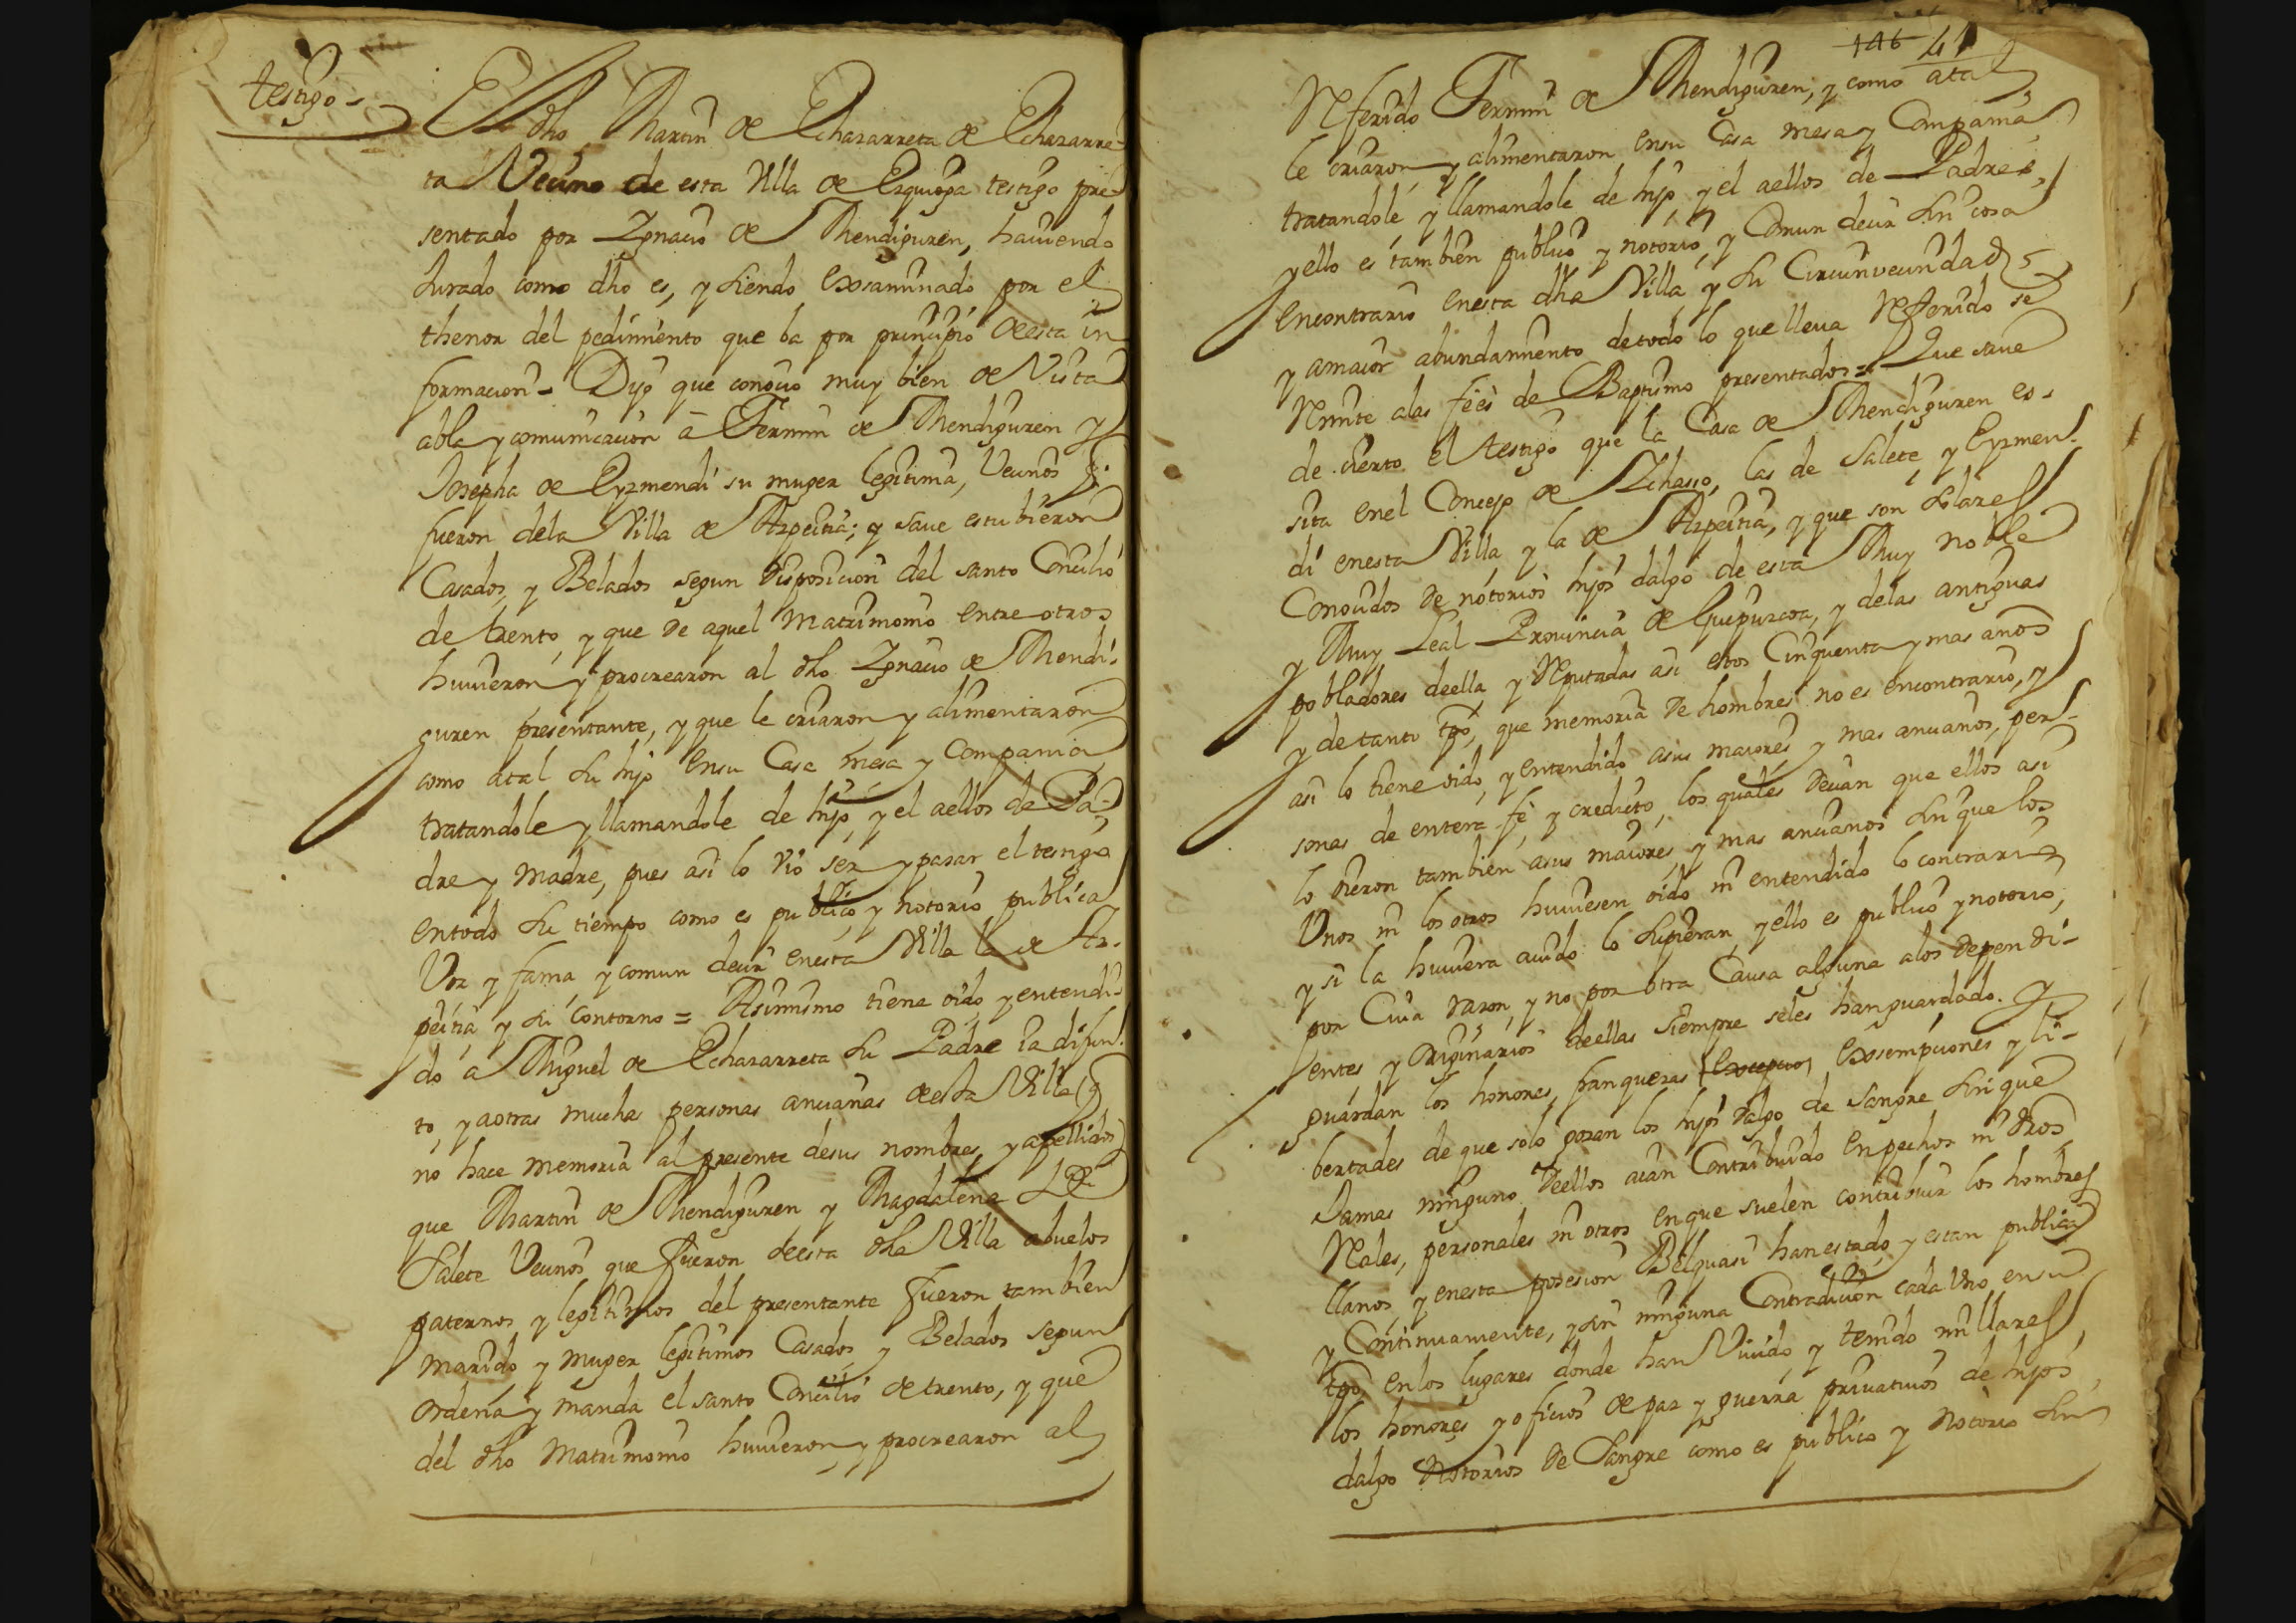 testigo
El dho Martin de Echazarreta de Echazarre-
ta Vecino de esta Villa de Ezquioga testigo pre-
sentado por Ygnacio de Mendiguren, haviendo
Jurado como dho es, y siendo Exsaminado por el
thenor del pedimiento que ba por principio de esta in
formacion = Dijo que conocio muy bien de Vista
abla y comunicacion â Fermin de Mendiguren y
Josepha de Eyzmendi su muger legitima, Vecinos q
fueron dela Villa de Azpeitia; y save estubieron
Casados, y Belados segun disposicion del santo Concilio
de trento, y que de aquel Matrimonio entre otros
huvieron y procrearon al dho Ygnacio de Mendi-
guren presentante, y que le criaron y alimentaron
como atal su hijo ensu Casa mesa y Compania
tratandole y llamandole de hijo, y el aellos de Pa-
dre y Madre, pues asi lo vio ser y pasar el testigo
entodo su tiempo como es publico, y notorio publica
Voz y fama, y comun decir enesta Villa la de Az-
peitia y su contorno = Asimismo tiene oido, y entendi-
do â Miguel de Echazarreta su Padre ia difun-
to, y aotras muchas personas ancianas deesta Villa (q
no hace memoria al presente desus nombres, y apellidos)
que Martin de Mendiguren y Magdalena de
Salete Vecinos que fueron deesta dha Villa abuelos
paternos y legitimos del presentante fueron tambien
marido y muger legitimos Casados y Belados segun
ordena y manda el santo Concilio de trento, y que
del dho Matrimonio huvieron y procrearon al
146 41
Referido Fermin de Mendiguren, y como atal
le criaron y alimentaron ensu Casa mesa y Compania
tratandole y llamandole de hijo, y el aellos de Padres,
y ello es tambien publico y notorio, y Comun decir sin cosa
encontrario enesta dha Villa y su Circunvecindad
y amaior abundamiento detodo lo que lleva Referido se
Remite alas feês de Baptismo presentados = Que save
de cierto el testigo que la Casa de Mendiguren es-
sita enel Concejo de Ychasso, las de Salete, y Eyzmen-
di enesta Villa y la de Azpeitia, y que son solares
Conocidos de notorios hijos dalgo de esta Muy noble
y Muy Leal Provincia de Guipuzcoa, y delas antiguas
pobladores deella, y Reputadas asi estos Cinquenta y mas años
y de tanto tpo, que memoria de hombres no es encontrario, y
asi lo tiene oido, y entendido asus maiores y mas ancianos, per-
sonas de entera fe, y credito, los quales decian que ellos asi
lo oieron tambien asus maiores, y mas ancianos sin que los
Unos ni los otros huviesen oido ni entendido lo contrario
y si la huviera avido lo supieran, y ello es publico y notorio,
por Cuia razon, y no por otra Causa alguna alos dependi-
entes y originarios deellas siempre seles han guardado. y
guardan los honores, franquezas Exsempciones y li-
bertades de que solo gozan los hijos dalgo de sangre sin que
Jamas ninguno deellos aian Contribuido en pechos ni dros
Reales, personales ni otros enque suelen contribuir los hombres
llanos, y enesta posesion Belquasi han estado, y estan publica
y Continuamente, y sin ninguna Contradicion cada Uno ensu
tpo, en los lugares donde han Vivido y tenido millares
los honores y oficios de paz y guerra privativos de hijos
dalgo Notorios de Sangre como es publico y Notorio sin